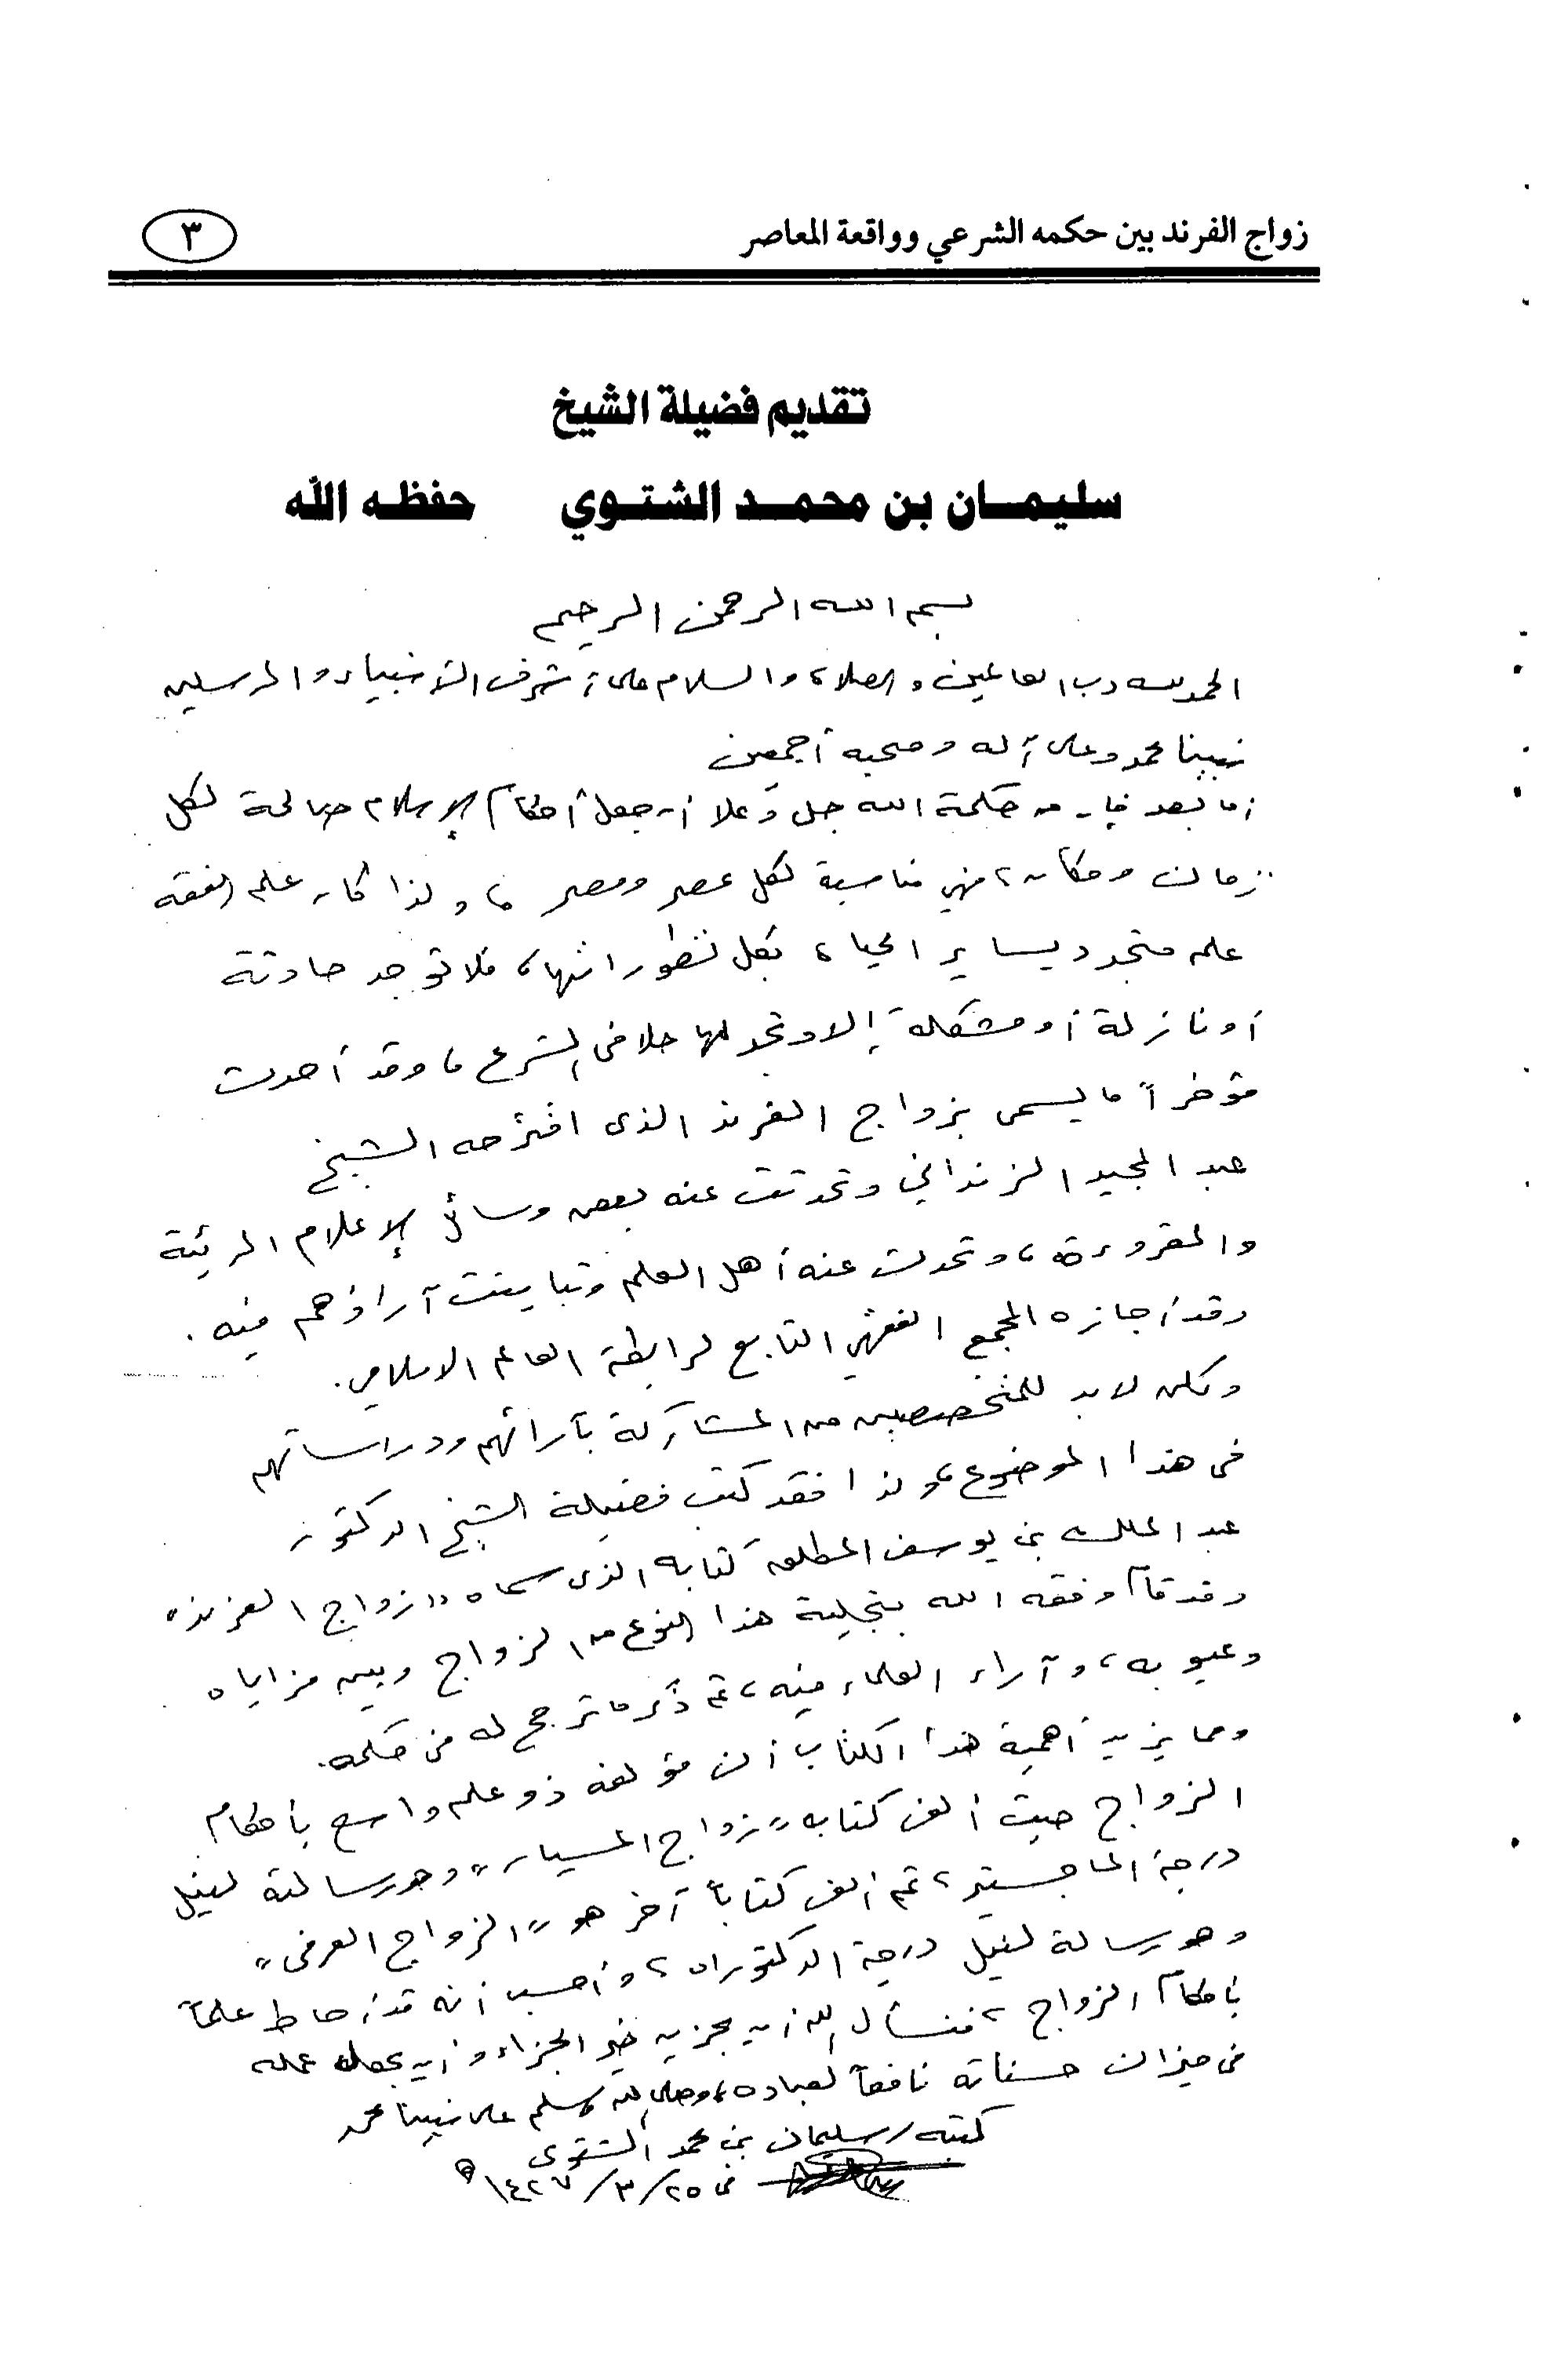 زواج الفرند بين حكمه الشرعي وواقعة المعاصر
٣
تقديم فضيلة الشيخ
سليمان بن محمد الشتوي حفظه الله
بسم الله الرحمن الرحيم
الحمد لله رب العالمين والصلاة والسلام على أشرف الأنبياء والمرسلين
نبينا محمد وعلى آله وصحبه أجمعين
أما بعد فإن من حكمة الله جل وعلا أن جعل أحكام الإسلام صالحة لكل
زمان ومكان، فهي مناسبة لكل عصر ومصر، ولذا كان علم الفقه
علم متجدد يساير الحياة بكل تطوراتها، فلا توجد حادثة
أو نازلة أو مشكلة إلا وتجد لها حلا في الشرع، وقد أحدث
مؤخراً ما يسمى بزواج الفرند الذي اقترحه الشيخ
عبد المجيد الزنداني وتحدثت عنه بعض وسائل الإعلام المرئية
والمقروءة، وتحدث عنه أهل العلم وتباينت آراؤهم فيه.
وقد أجازه المجمع الفقهي التابع لرابطة العالم الاسلامي.
ولكن لابد للمتخصصين من المشاركة بآرائهم ودراساتهم
في هذا الموضوع، ولذا فقد كتب فضيلة الشيخ الدكتور
عبد الملك بن يوسف المطلق كتابه الذي سماه «زواج الفرند»
وقد قام وفقه الله بتجلية هذا النوع من الزواج وبين مزاياه
وعيوبه، وآراء العلماء فيه، ثم ذكر ما ترجح له من حكمه.
ومما يزيد أهمية هذا الكتاب أن مؤلفه ذو علم واسع بأحكام
الزواج حيث ألف كتابه «زواج المسيار» وهو رسالة لنيل
درجة الماجستير، ثم ألف كتاباً آخر هو «الزواج العرفي»
وهو رسالة لنيل درجة الدكتوراه، وأحسب أنه قد أحاط علماً
بأحكام الزواج، فنسأل الله أن يجزيه خير الجزاء وأن يجعل عمله
في ميزان حسناته نافعاً لعباده، وصلى الله وسلم على نبينا محمد
كتبه / سليمان بن محمد الشتوي
في ٢٥/٣/١٤٢٧ه